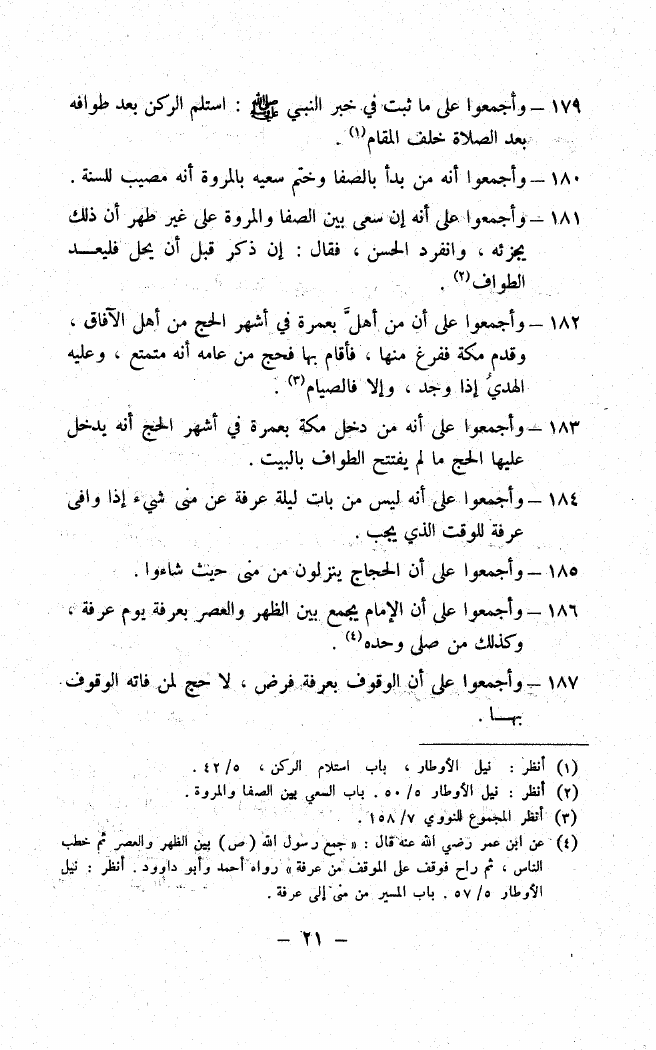 ١٧٩ – وأجمعوا على ما ثبت في خبر النبي ﷺ : استلم الركن بعد طوافه
بعد الصلاة خلف المقام(١) .
١٨٠ – وأجمعوا أنه من بدأ بالصفا وختم سعيه بالمروة أنه مصيب للسنة .
١٨١ – وأجمعوا على أنه إن سعى بين الصفا والمروة على غير طهر أن ذلك
يجزئه ، وانفرد الحسن ، فقال : إن ذكر قبل أن يحل فليعـــد
الطواف(٢) .
١٨٢ – وأجمعوا على أن من أهلَّ بعمرة في أشهر الحج من أهل الآفاق ،
وقدم مكة ففرغ منها ، فأقام بها فحج من عامه أنه متمتع ، وعليه
الهديُ إذا وجد ، وإلا فالصيام(٣) .
١٨٣ – وأجمعوا على أنه من دخل مكة بعمرة في أشهر الحج أنه يدخل
عليها الحج ما لم يفتتح الطواف بالبيت .
١٨٤ – وأجمعوا على أنه ليس من بات ليلة عرفة عن منى شيء إذا وافى
عرفة للوقت الذي يجب .
١٨٥ – وأجمعوا على أن الحجاج ينزلون من منى حيث شاءوا .
١٨٦ – وأجمعوا على أن الإمام يجمع بين الظهر والعصر بعرفة يوم عرفة ،
وكذلك من صلى وحده(٤) .
١٨٧ – وأجمعوا على أن الوقوف بعرفة فرض ، لا حج لمن فاته الوقوف
بهـــا .
(١) أنظر : نيل الأوطار ، باب استلام الركن ، ٥/ ٤٢ .
(٢) أنظر : نيل الأوطار ٥/ ٥٠ . باب السعي بين الصفا والمروة .
(٣) أنظر المجموع للنووي ٧/ ١٥٨ .
(٤) عن ابن عمر رضي الله عنه قال : « جمع رسول الله (ص) بين الظهر والعصر ثم خطب
الناس ، ثم راح فوقف على الموقف من عرفة » رواه أحمد وأبو داوود . أنظر : نيل
الأوطار ٥/ ٥٧ . باب المسير من منى إلى عرفة .
– ٢١ –